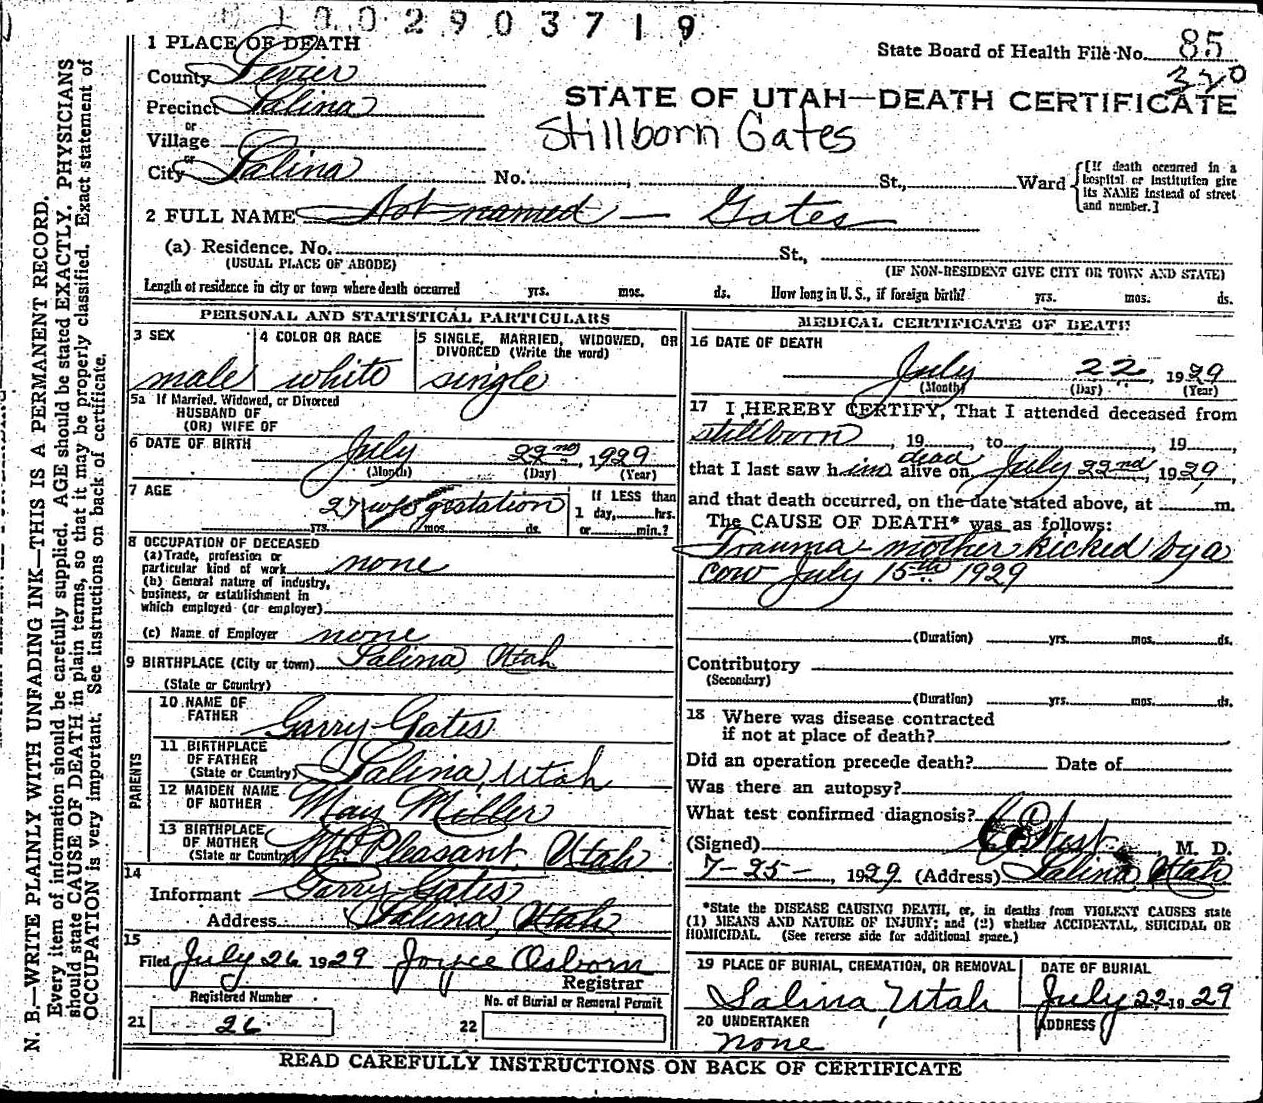 1002903719
1 PLACE OF DEATH
State Board of Health File No. 85
320
County Sevier
Precinct Salina
STATE OF UTAH—DEATH CERTIFICATE
or
Village
Stillborn Gates
or
City Salina No. , St., Ward
[If death occurred in a hospital or institution give its NAME instead of street and number.]
2 FULL NAME Not named — Gates
(a) Residence. No. St.,
(USUAL PLACE OF ABODE) (IF NON-RESIDENT GIVE CITY OR TOWN AND STATE)
Length of residence in city or town where death occurred yrs. mos. ds. How long in U. S., if foreign birth? yrs. mos. ds.
PERSONAL AND STATISTICAL PARTICULARS
3 SEX 4 COLOR OR RACE 5 SINGLE, MARRIED, WIDOWED, OR
DIVORCED (Write the word)
male white single
5a If Married, Widowed, or Divorced
HUSBAND OF
(OR) WIFE OF
6 DATE OF BIRTH July 22nd, 1929
(Month) (Day) (Year)
7 AGE 27 wks gestation
yrs. mos. ds.
If LESS than
1 day, hrs.
or min.?
8 OCCUPATION OF DECEASED
(a) Trade, profession or
particular kind of work none
(b) General nature of industry,
business, or establishment in
which employed (or employer)
(c) Name of Employer none
9 BIRTHPLACE (City or town) Salina, Utah
(State or Country)
PARENTS
10 NAME OF
FATHER Garry Gates
11 BIRTHPLACE
OF FATHER
(State or Country) Salina, Utah
12 MAIDEN NAME
OF MOTHER May Miller
13 BIRTHPLACE
OF MOTHER
(State or Country) Mt. Pleasant, Utah
14
Informant Garry Gates
Address Salina, Utah
15
Filed July 26 1929 Joyce Osborn
Registrar
Registered Number No. of Burial or Removal Permit
21 26 22
MEDICAL CERTIFICATE OF DEATH
16 DATE OF DEATH
July 22, 1929
(Month) (Day) (Year)
17 I HEREBY CERTIFY, That I attended deceased from
stillborn, 19 , to , 19
dead
that I last saw him alive on July 22nd, 1929,
and that death occurred, on the date stated above, at m.
The CAUSE OF DEATH* was as follows:
Trauma - mother kicked by a
cow July 15th 1929
(Duration) yrs. mos. ds.
Contributory
(Secondary)
(Duration) yrs. mos. ds.
18 Where was disease contracted
if not at place of death?
Did an operation precede death? Date of
Was there an autopsy?
What test confirmed diagnosis?
(Signed) West, M. D.
7-25-, 1929 (Address) Salina, Utah
*State the DISEASE CAUSING DEATH, or, in deaths from VIOLENT CAUSES state
(1) MEANS AND NATURE OF INJURY; and (2) whether ACCIDENTAL, SUICIDAL OR
HOMICIDAL. (See reverse side for additional space.)
19 PLACE OF BURIAL, CREMATION, OR REMOVAL DATE OF BURIAL
Salina, Utah July 22 1929
20 UNDERTAKER ADDRESS
none
READ CAREFULLY INSTRUCTIONS ON BACK OF CERTIFICATE
N. B.—WRITE PLAINLY WITH UNFADING INK—THIS IS A PERMANENT RECORD.
Every item of information should be carefully supplied. AGE should be stated EXACTLY. PHYSICIANS
should state CAUSE OF DEATH in plain terms, so that it may be properly classified. Exact statement of
OCCUPATION is very important. See instructions on back of certificate.